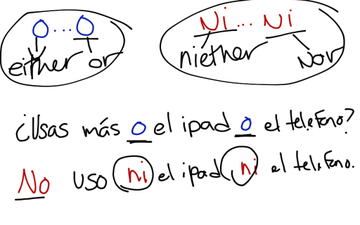 O...O Ni...Ni
either or niether Nor
¿Usas más o el ipad o el teléfono?
No uso ni el ipad, ni el teléfono.